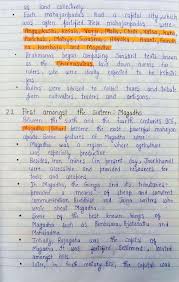 as land collectively.
Each mahajanapada had a capital city, which
was often fortified. These mahajanapadas were:
Brahmanas began composing Sanskrit texts known
as the Dharmasutras. laid down norms for
rulers who were ideally expected to be kshatri
yas.
Rulers were advised to collect taxes and tribute
from cultivators, traders and artisans.
2.2 First amongst the sixteen: Magadha
Between the sixth and the fourth centuries BCE,
Magadha (Bihar) became the most powerful mahajan
apada. Some features of Magadha were:
Magadha was a region where agriculture
was especially productive
Besides, iron mines (in present days Jharkhand)
were accessible and provided resources for
tools and weapons.
In Magadha, the Ganga and its tributaries
provided a means of convenient
communication. Buddhist and Jaina writers who
wrote about Magadha
Some of the best known kings of
Magadha such as Bimbisara, Ajatasattu and
Mahapadma.
Initially, Rajagaha was the capital of
Magadha. It was fortified settlement located
amongst hills.
Later, in 4th century BCE, the capital was